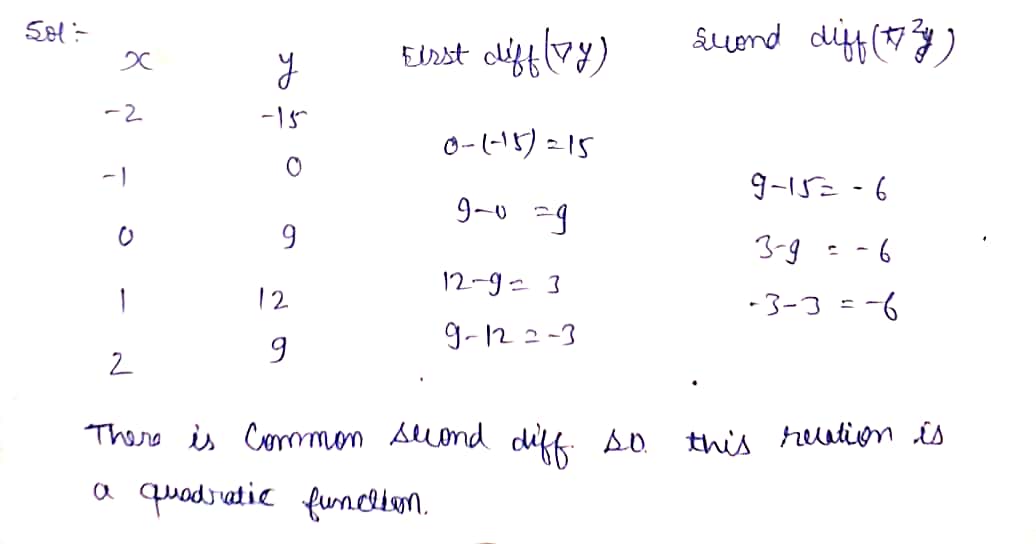 Sol :-
x y First diff (∇y) Second diff (∇²y)
-2 -15
0-(-15) = 15
-1 0
9-15 = -6
9-0 = 9
0 9
3-9 = -6
12-9 = 3
1 12
-3-3 = -6
9-12 = -3
2 9
There is Common second diff. so. this relation is
a quadratic function.